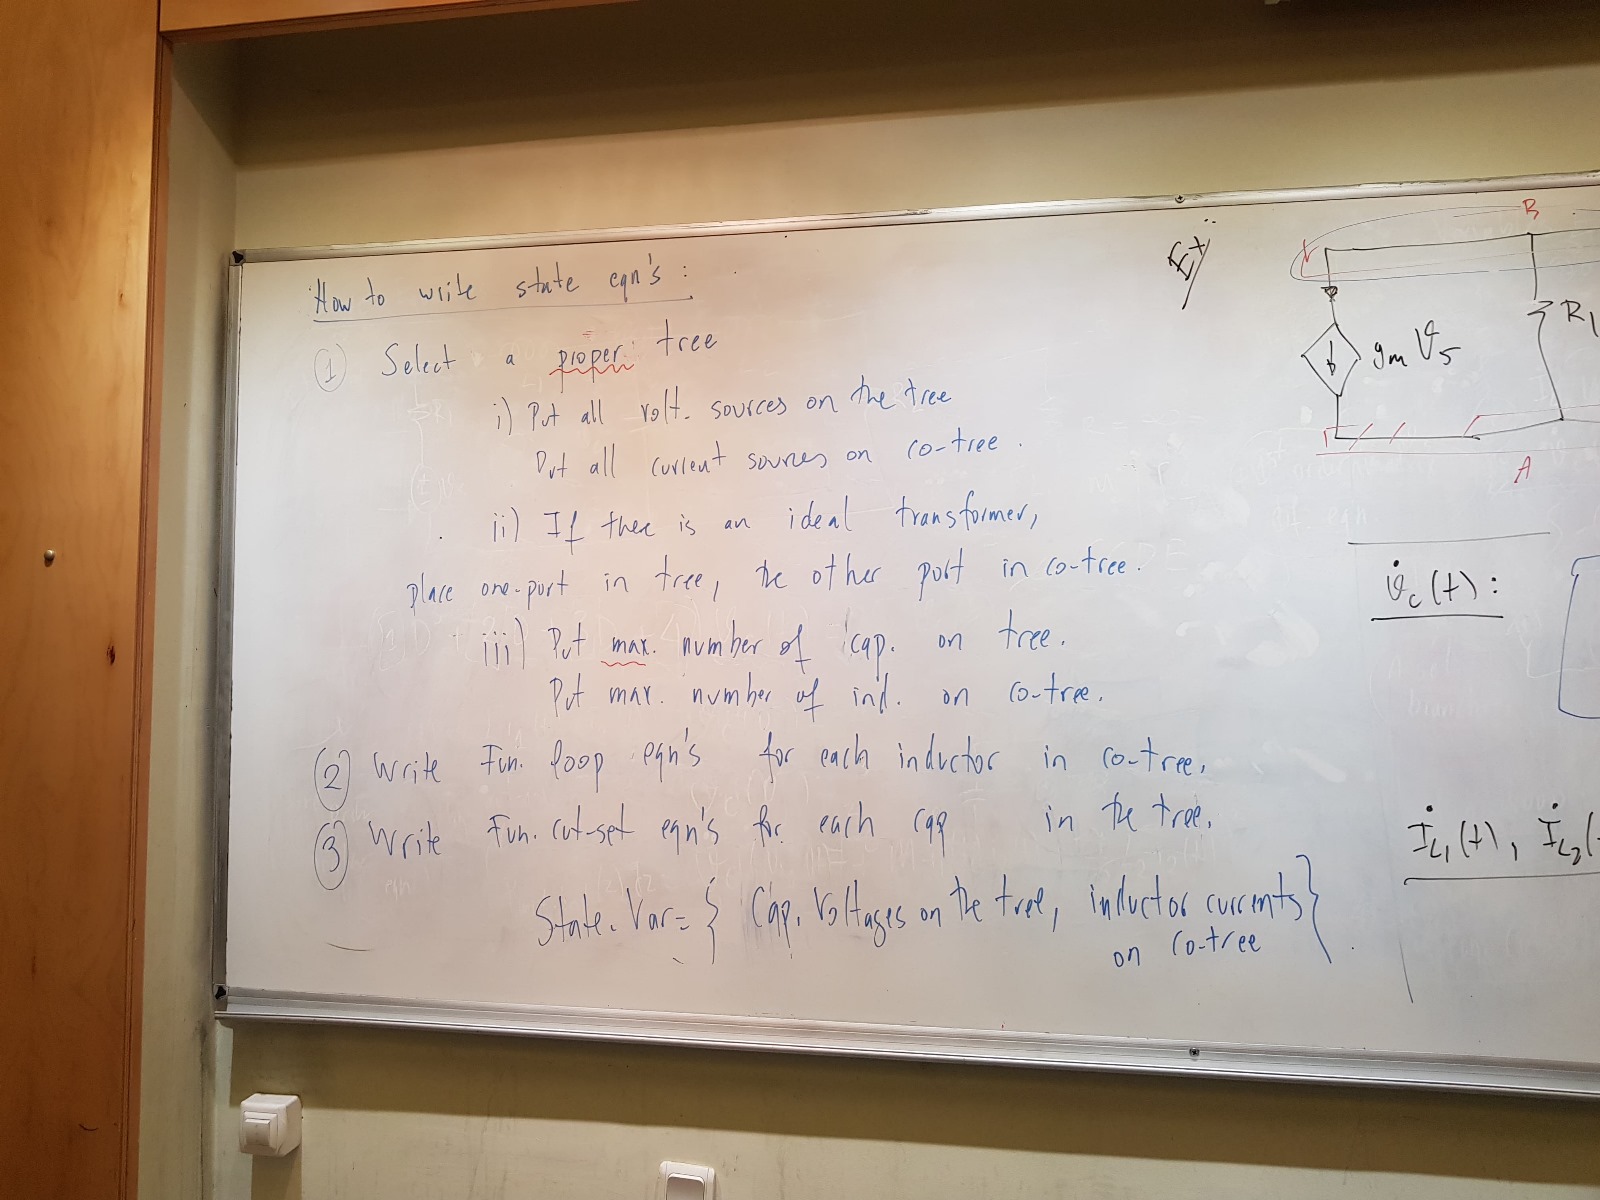 How to write state eqn's :
① Select a proper tree
i) Put all volt. sources on the tree
Put all current sources on co-tree.
ii) If there is an ideal transformer,
place one-port in tree, the other port in co-tree.
iii) Put max. number of cap. on tree.
Put max. number of ind. on co-tree.
② Write Fun. loop eqn's for each inductor in co-tree.
③ Write Fun. cut-set eqn's for each cap in the tree.
State. Var = { Cap. Voltages on the tree, inductor currents
on co-tree }
Ex/
B
gm V5
R1
A
v̇c(t) :
İL1(t), İL2(t